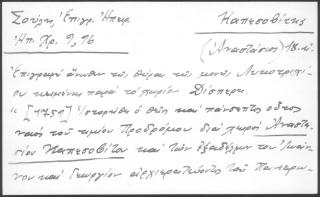 Σούλης, Ἐπιγρ. Ἠπειρ. Καπεσοβίτης
Ἠπ. Χρ. 9, 96 (Ἀναστάσιος) 18. αἰ.
Ἐπιγραφὴ ἄνωθεν τῆς θύρας τῆς μονῆς
κειμένης παρὰ τὸ χωρίον Δίσπερη.
"[1751] Ἱστορήθη ὁ θεῖος καὶ πάνσεπτος οὗτος
ναὸς τοῦ τιμίου Προδρόμου διὰ χειρὸς Ἀναστα-
σίου Καπεσοβίτου καὶ τῶν ἐξαδέλφων του Ἰωάν-
νου καὶ Γεωργίου ἀρχιερατεύοντος τοῦ Πανιερω-